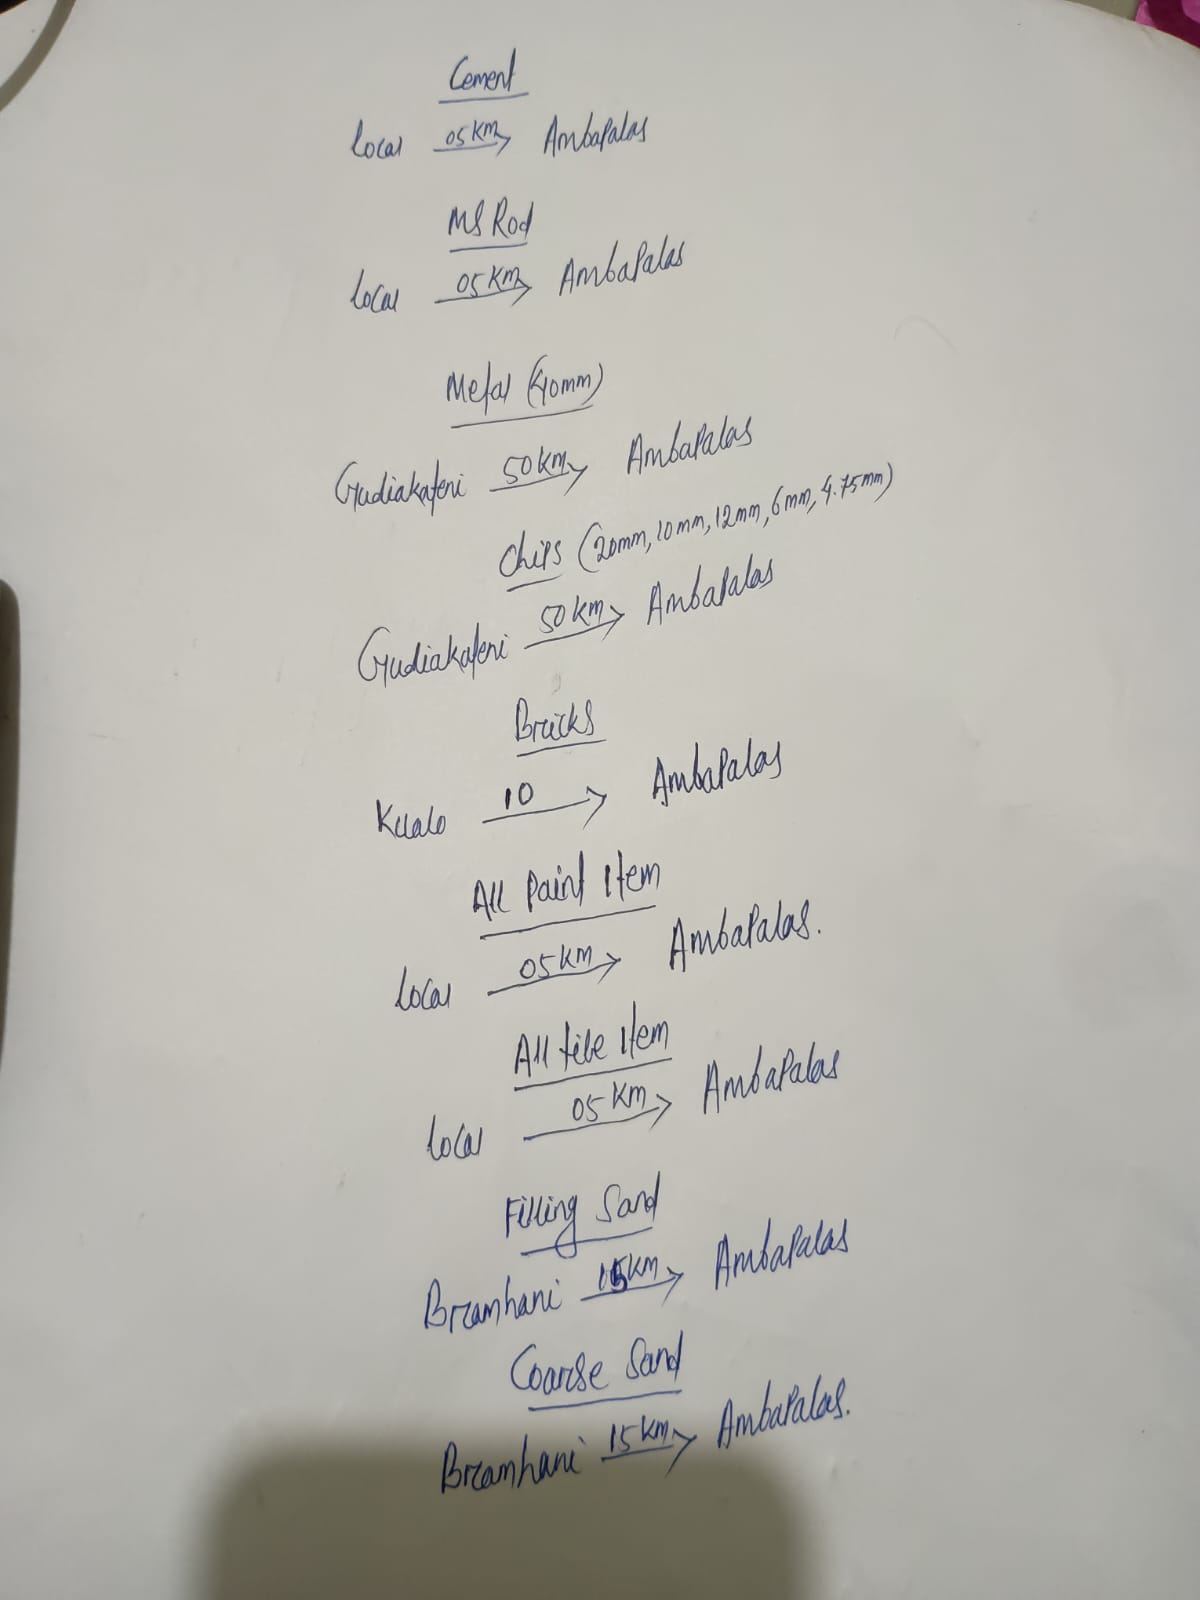 Cement
local 05 KM → Ambapalas
MS Rod
local 05 KM → Ambapalas
Metal (40mm)
Gudiakateni 50 KM → Ambapalas
Chips (20mm, 10mm, 12mm, 6mm, 4.75mm)
Gudiakateni 50 KM → Ambapalas
Bricks
Kualo 10 → Ambapalas
All Paint Item
local 05 KM → Ambapalas.
All tile Item
local 05 KM → Ambapalas
Filling Sand
Bramhani 15 KM → Ambapalas
Coarse Sand
Bramhani 15 KM → Ambapalas.